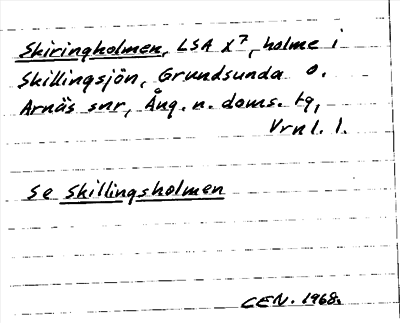 Skiringholmen, LSA X7, holme i
Skillingsjön, Grundsunda o.
Arnäs snr, Ång. n. doms. tg,
Vrnl. l.
Se Skillingsholmen
CEN. 1968.